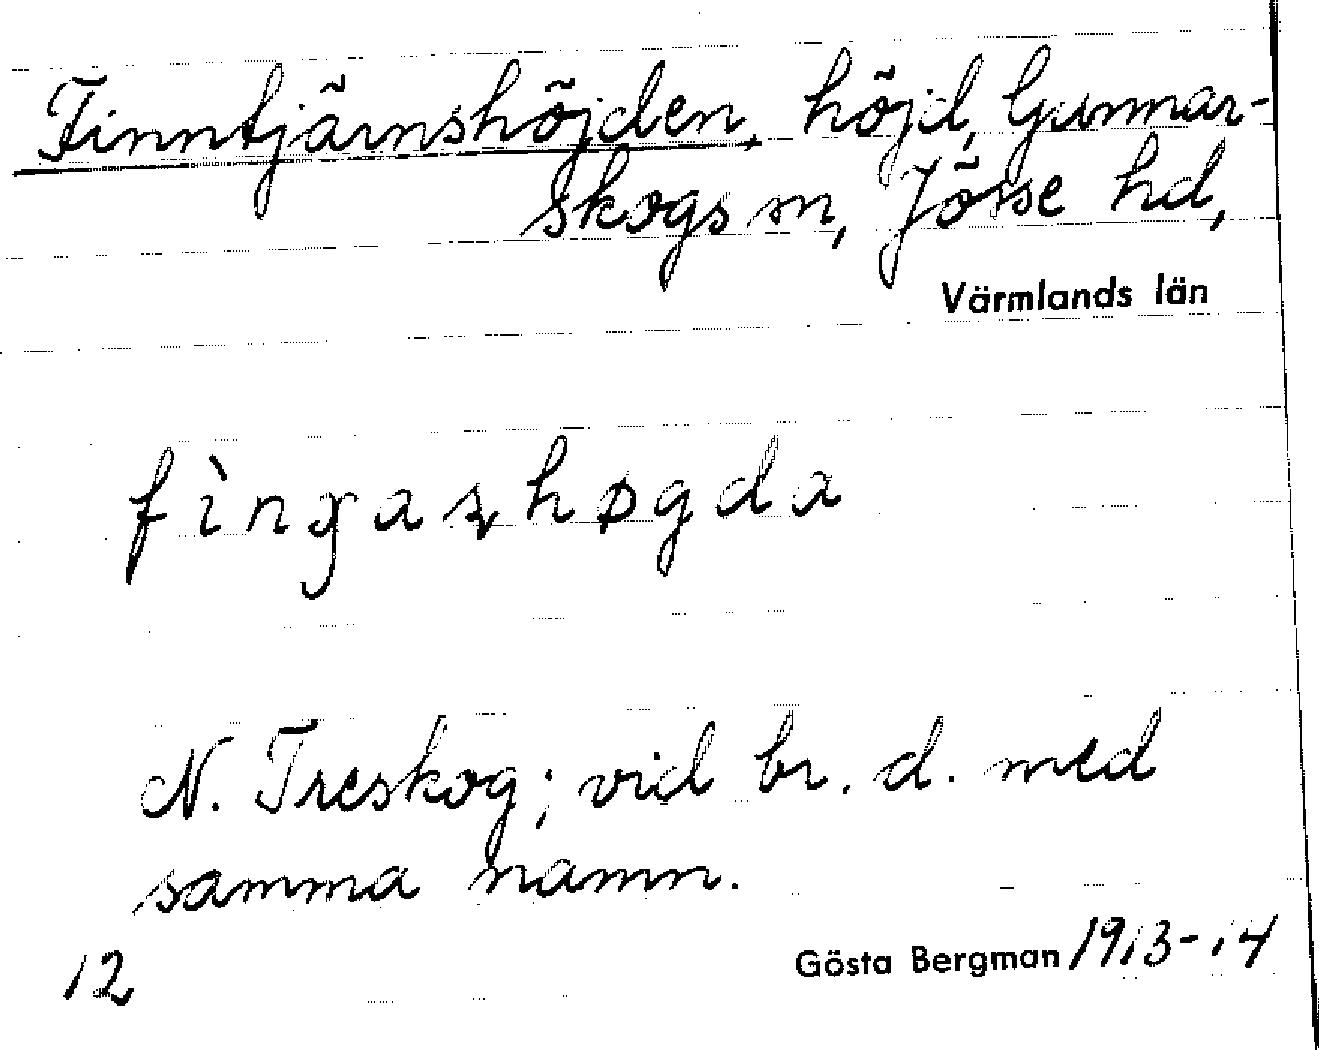 Finntjärnshöjden, höjd, Gunnar-
skogs sn, Jösse hd,
Värmlands län
N. Treskog; vid br. d. med
samma namn.
12
Gösta Bergman 1913-14